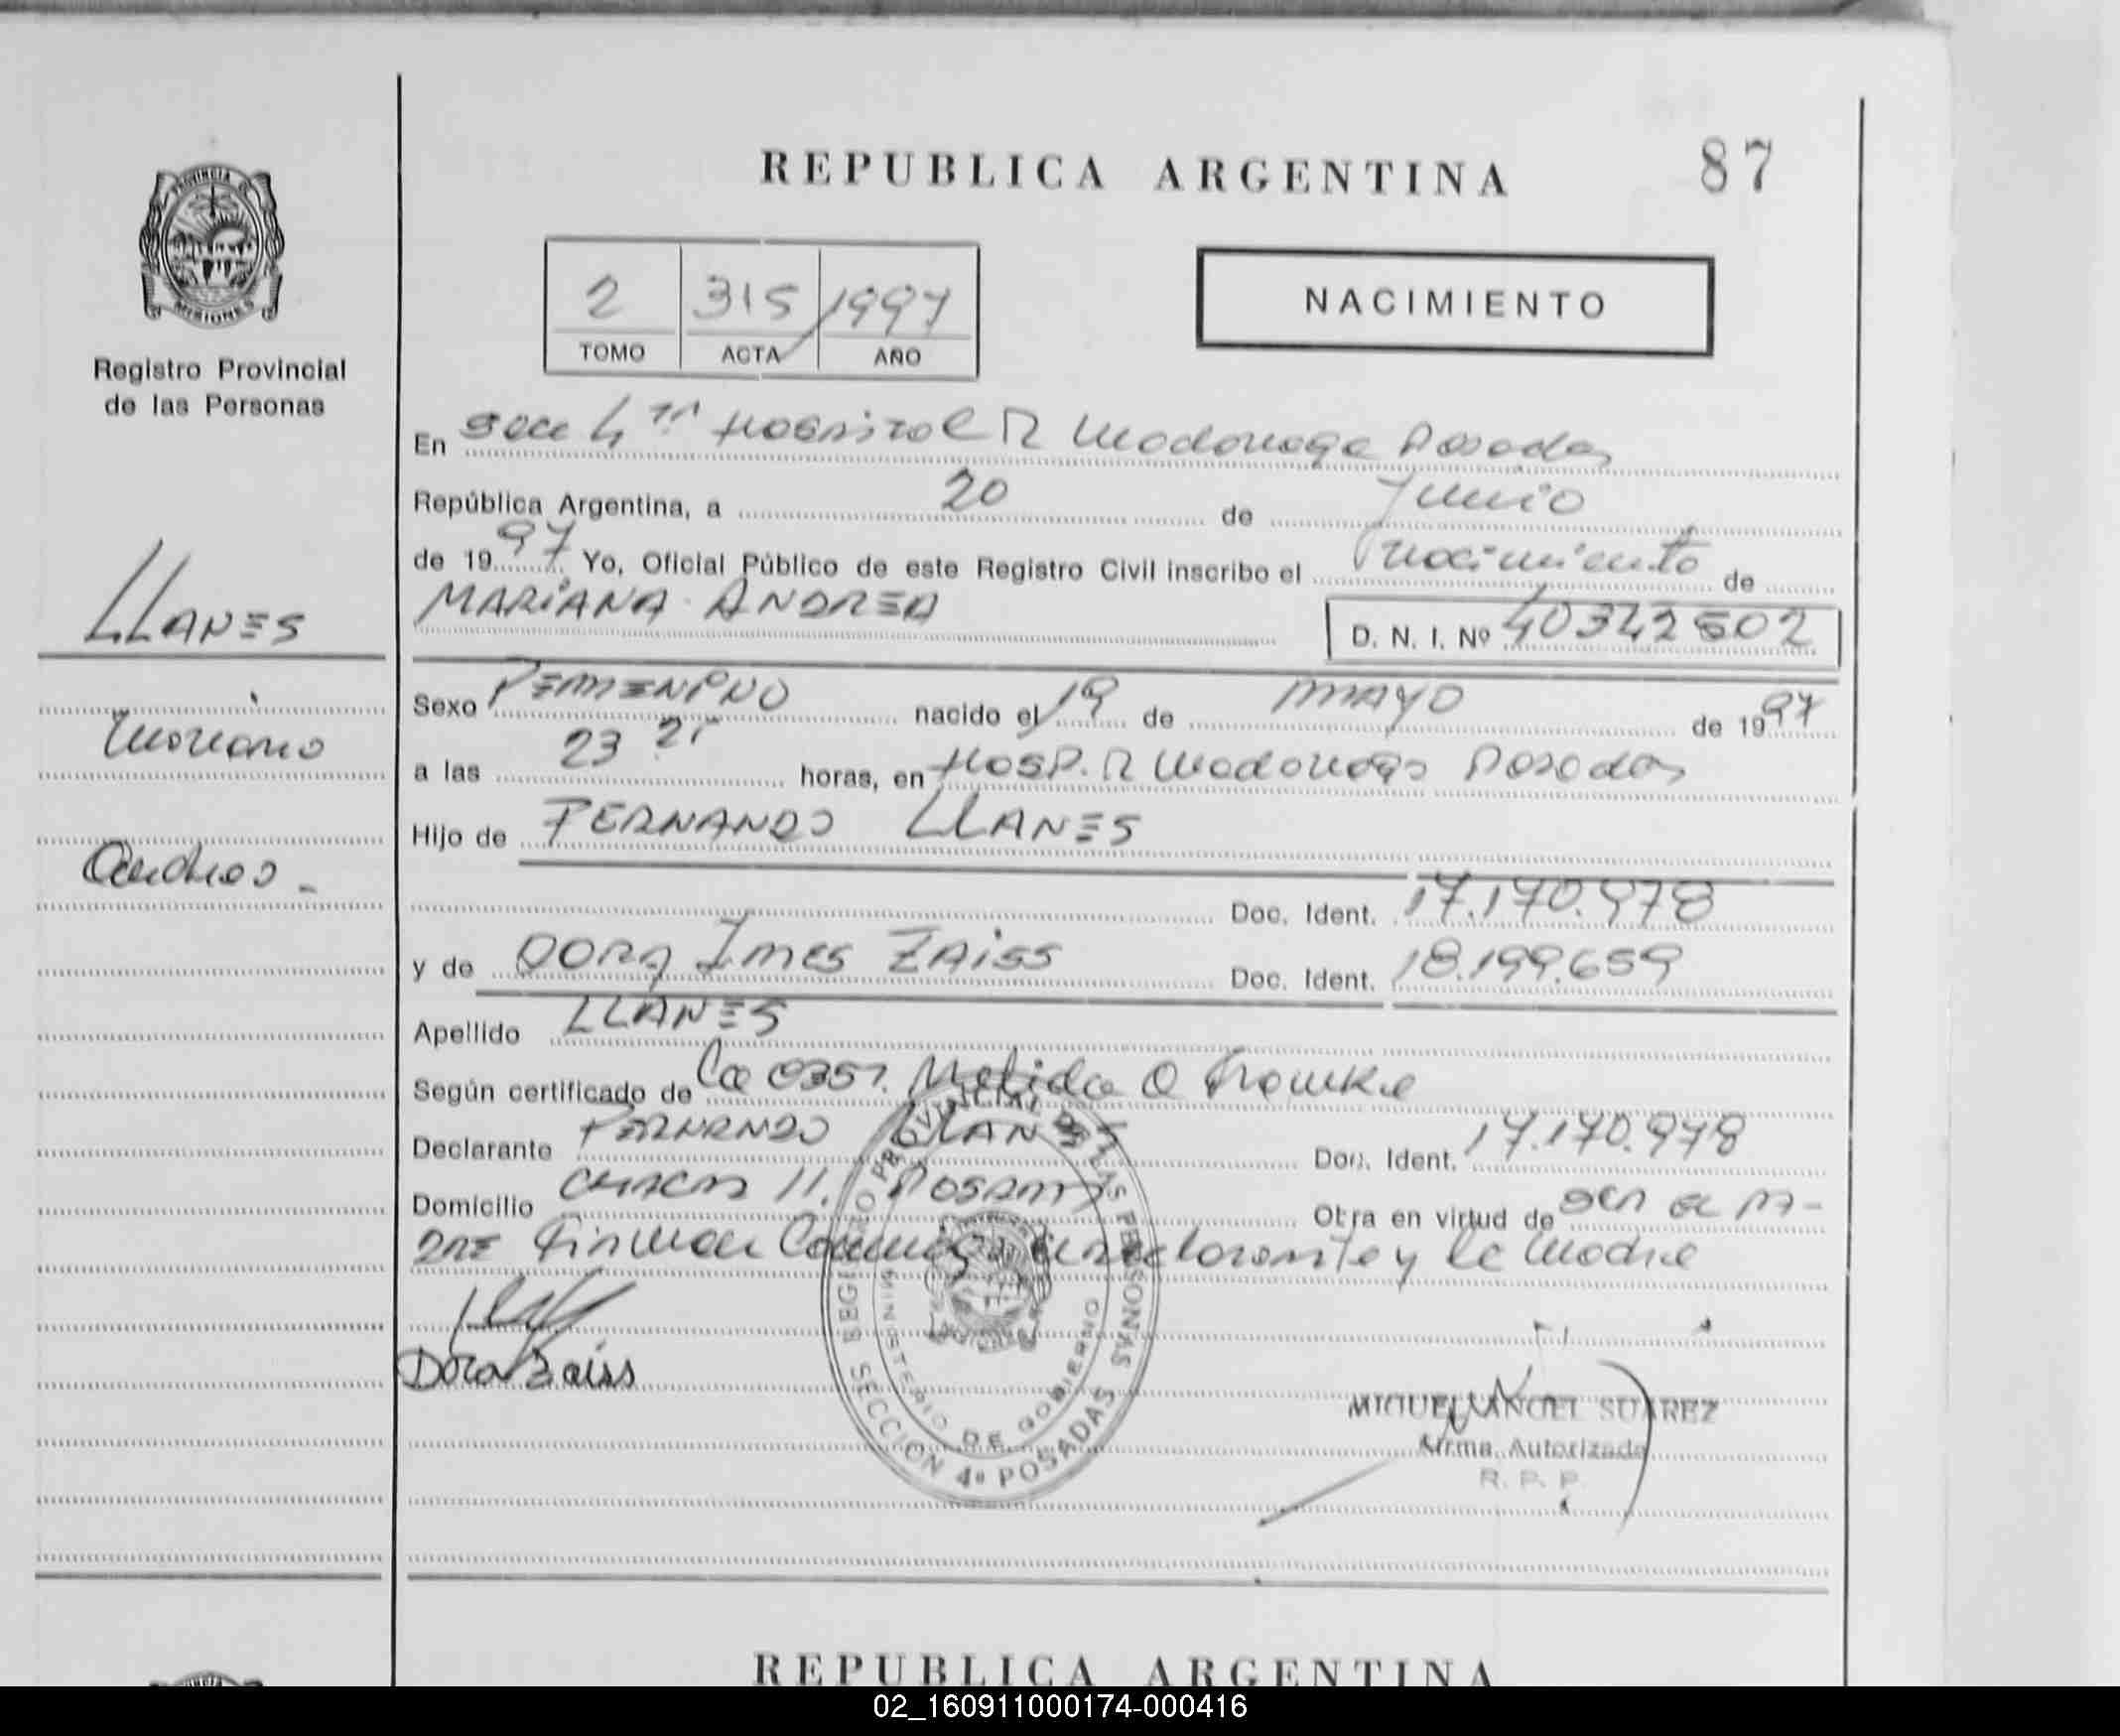 REPUBLICA ARGENTINA
87
PROVINCIA DE
MISIONES
Registro Provincial
de las Personas
2 315 1997
TOMO ACTA AÑO
NACIMIENTO
En Secc 4 Hospital R Madariaga Posadas
República Argentina, a 20 de Junio
de 1997 Yo, Oficial Público de este Registro Civil inscribo el nacimiento de
MARIANA ANDREA
D. N. I. Nº 40342502
LLANES
Mariana
Andrea -
Sexo FEMENINO nacido el 19 de MAYO de 1997
a las 23 horas, en HOSP. R Madariaga Posadas
Hijo de FERNANDO LLANES
Doc. Ident. 17.170.978
y de DORA INES ZAISS Doc. Ident. 18.199.659
Apellido LLANES
Según certificado de 0357. Mafalda O
Declarante FERNANDO LLANES Doc. Ident. 17.170.978
Domicilio CHACRA 11. POSADAS Otra en virtud de SER EL PA-
DRE Firman Conmigo declarante y la Madre
Dora Zaiss
REGISTRO PROVINCIAL DE LAS PERSONAS
MINISTERIO DE GOBIERNO
SECCION 4ª POSADAS
MIGUEL ANGEL SUAREZ
Firma Autorizada
R. P. P.
REPUBLICA ARGENTINA
02_160911000174-000416